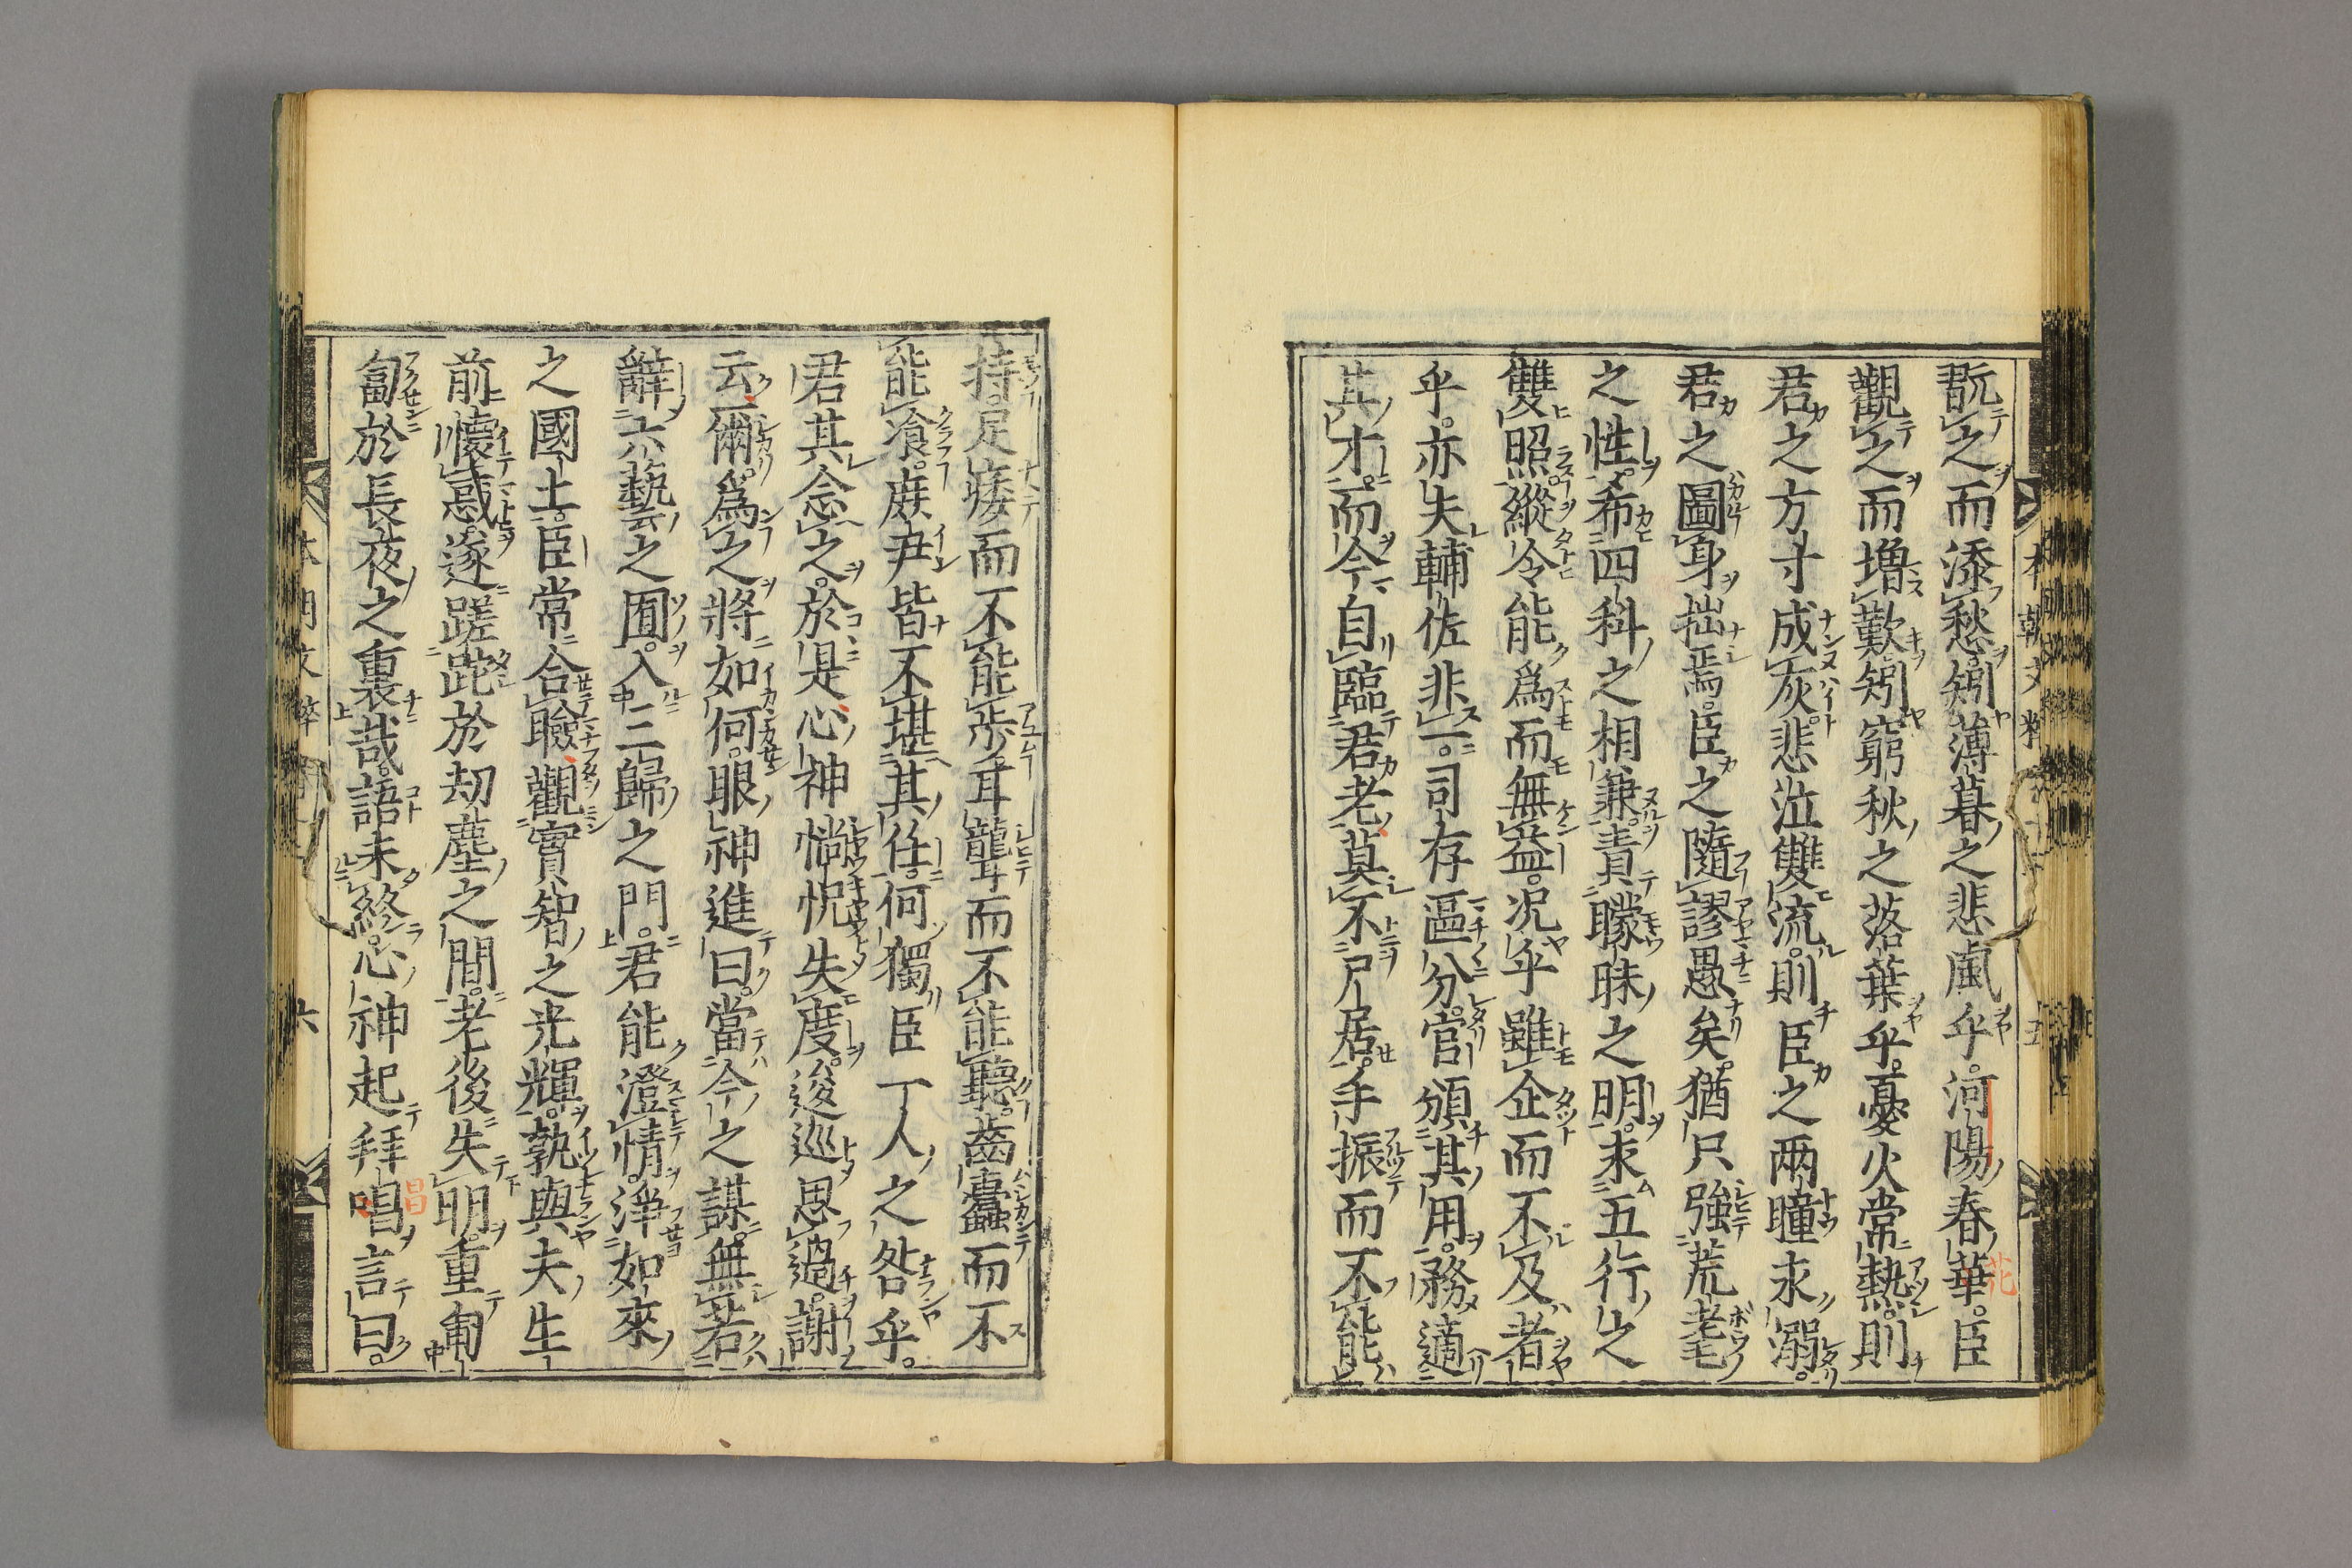 翫之而添愁。矧薄暮之悲風乎。河陽春華。臣
觀之而増歎。矧窮秋之落葉乎。憂火常熱。則
君之方寸成灰。悲泣雙流。則臣之兩瞳求溺。
君之圖身拙焉。臣之隨謬愚矣。猶只強荒耄
之性。希四科之相兼。責矇昧之明。求五行之
雙照。縱令能爲而無益。况乎雖企而不及者
乎。亦夫輔佐非一。司存區分。官頒其用。務適
其才。而今自臨君老。莫不尸居。手振而不能
持。足痿而不能歩。耳聾而不能聽。齒蠹而不
能飡。庶尹皆不堪其任。何獨臣一人之咎乎。
君其念之。於是心神惝怳失度。逡巡思過。謝
云。爾爲之將如何。眼神進曰。當今之謀。無若
辭六藝之囿。入三歸之門。君能澄情。淨如來
之國土。臣常合瞼觀實智之光輝。孰與夫生
前懷惑。遂蹉跎於劫塵之間。老後失明。重匍
匐於長夜之裏哉。語未終。心神起拜唱言曰。
本朝文粹
五
本朝文粹
六
花
昌